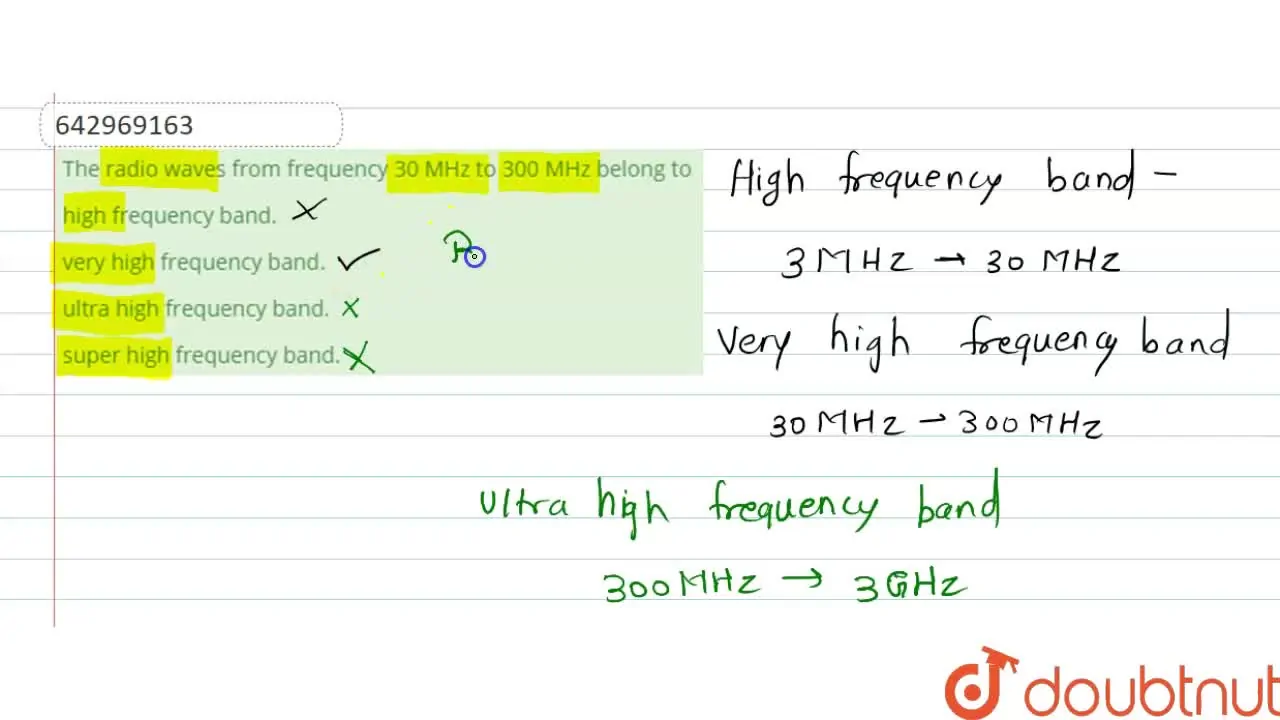 642969163
The radio waves from frequency 30 MHz to 300 MHz belong to
high frequency band.
very high frequency band.
ultra high frequency band.
super high frequency band.
High frequency band -
3 MHZ → 30 MHZ
Very high frequency band
30 MHZ → 300 MHZ
Ultra high frequency band
300 MHZ → 3 GHZ
doubtnut